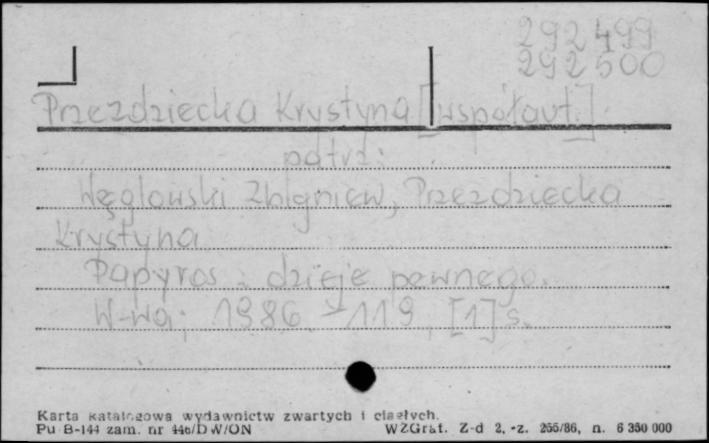 292499
292500
Przezdziecka Krystyna [współaut.]
patrz:
Węglowski Zbigniew, Przezdziecka
Krystyna
Papyros : dzieje pewnego.
W-wa, 1986. 119, [1] s.
Karta katalogowa wydawnictw zwartych i ciągłych.
Pu B-144 zam. nr 446/DW/ON WZGraf. Z-d 2, -z. 255/86, n. 6 350 000